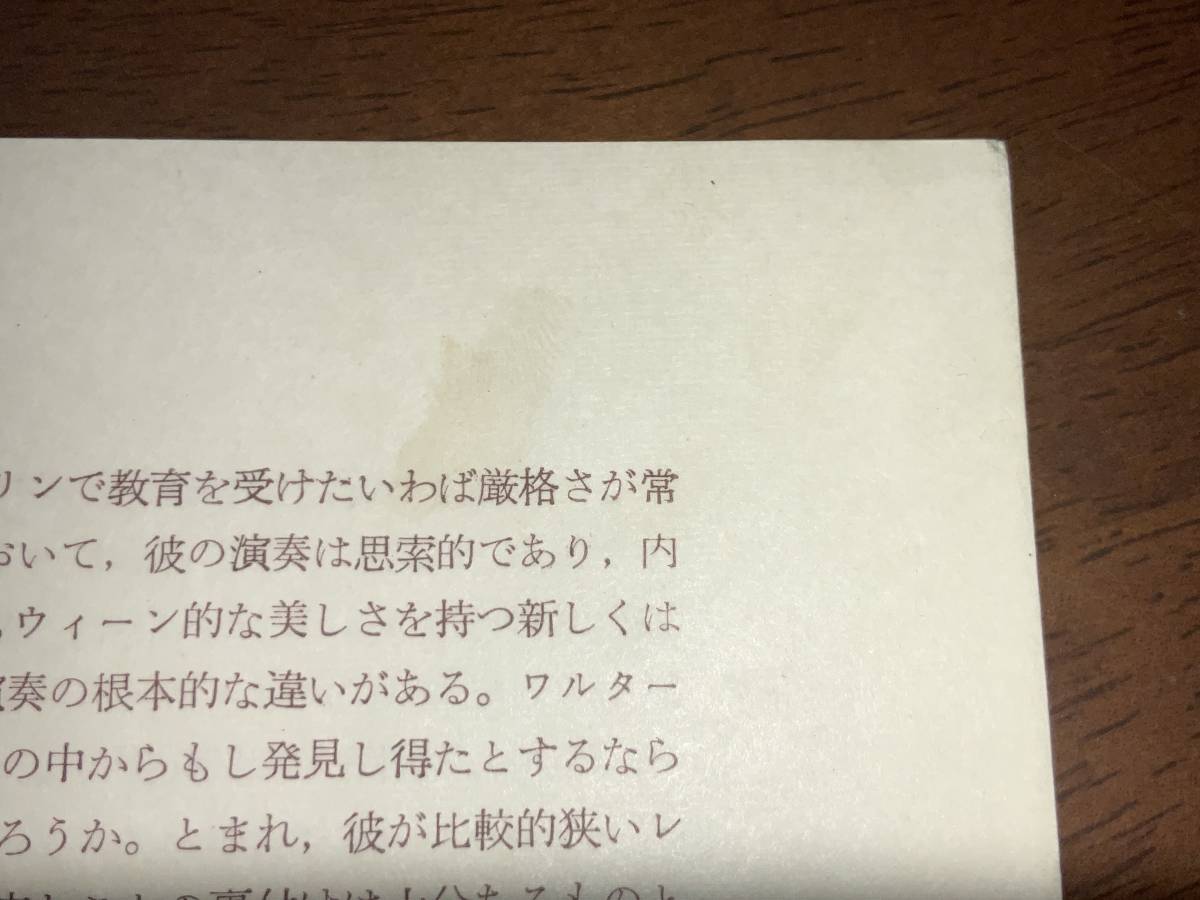 リンで教育を受けたいわば厳格さが常
おいて，彼の演奏は思索的であり，内
，ウィーン的な美しさを持つ新しくは
演奏の根本的な違いがある。ワルター
の中からもし発見し得たとするなら
ろうか。とまれ，彼が比較的狭いレ